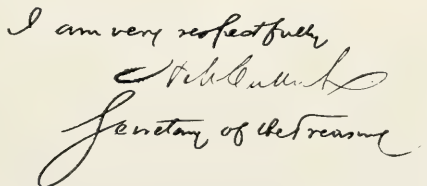 I am very respectfully
H McCulloch
Secretary of the Treasury